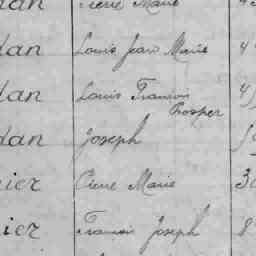 dan Pierre Marie
dan Louis Jean Marie 4
dan Louis Francois 4
Prosper
dan Joseph
ier Pierre Marie 30
ier Francois Joseph 8